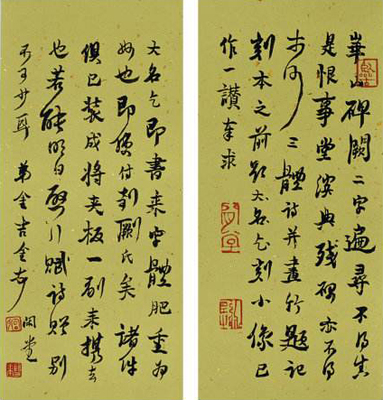 華山碑闕二字遍尋不得真
是恨事堂溪典殘碑亦不得
三體詩并畫竹題記
刻本之前大名乞刻小像已
作一讚奉求
大名乞即書来字體肥重為
妙也即便付剞劂氏矣諸件
俱已裝成將夾板一副来攜去
也若能明日啟行賦詩贈別
不可少耳弟金吉金